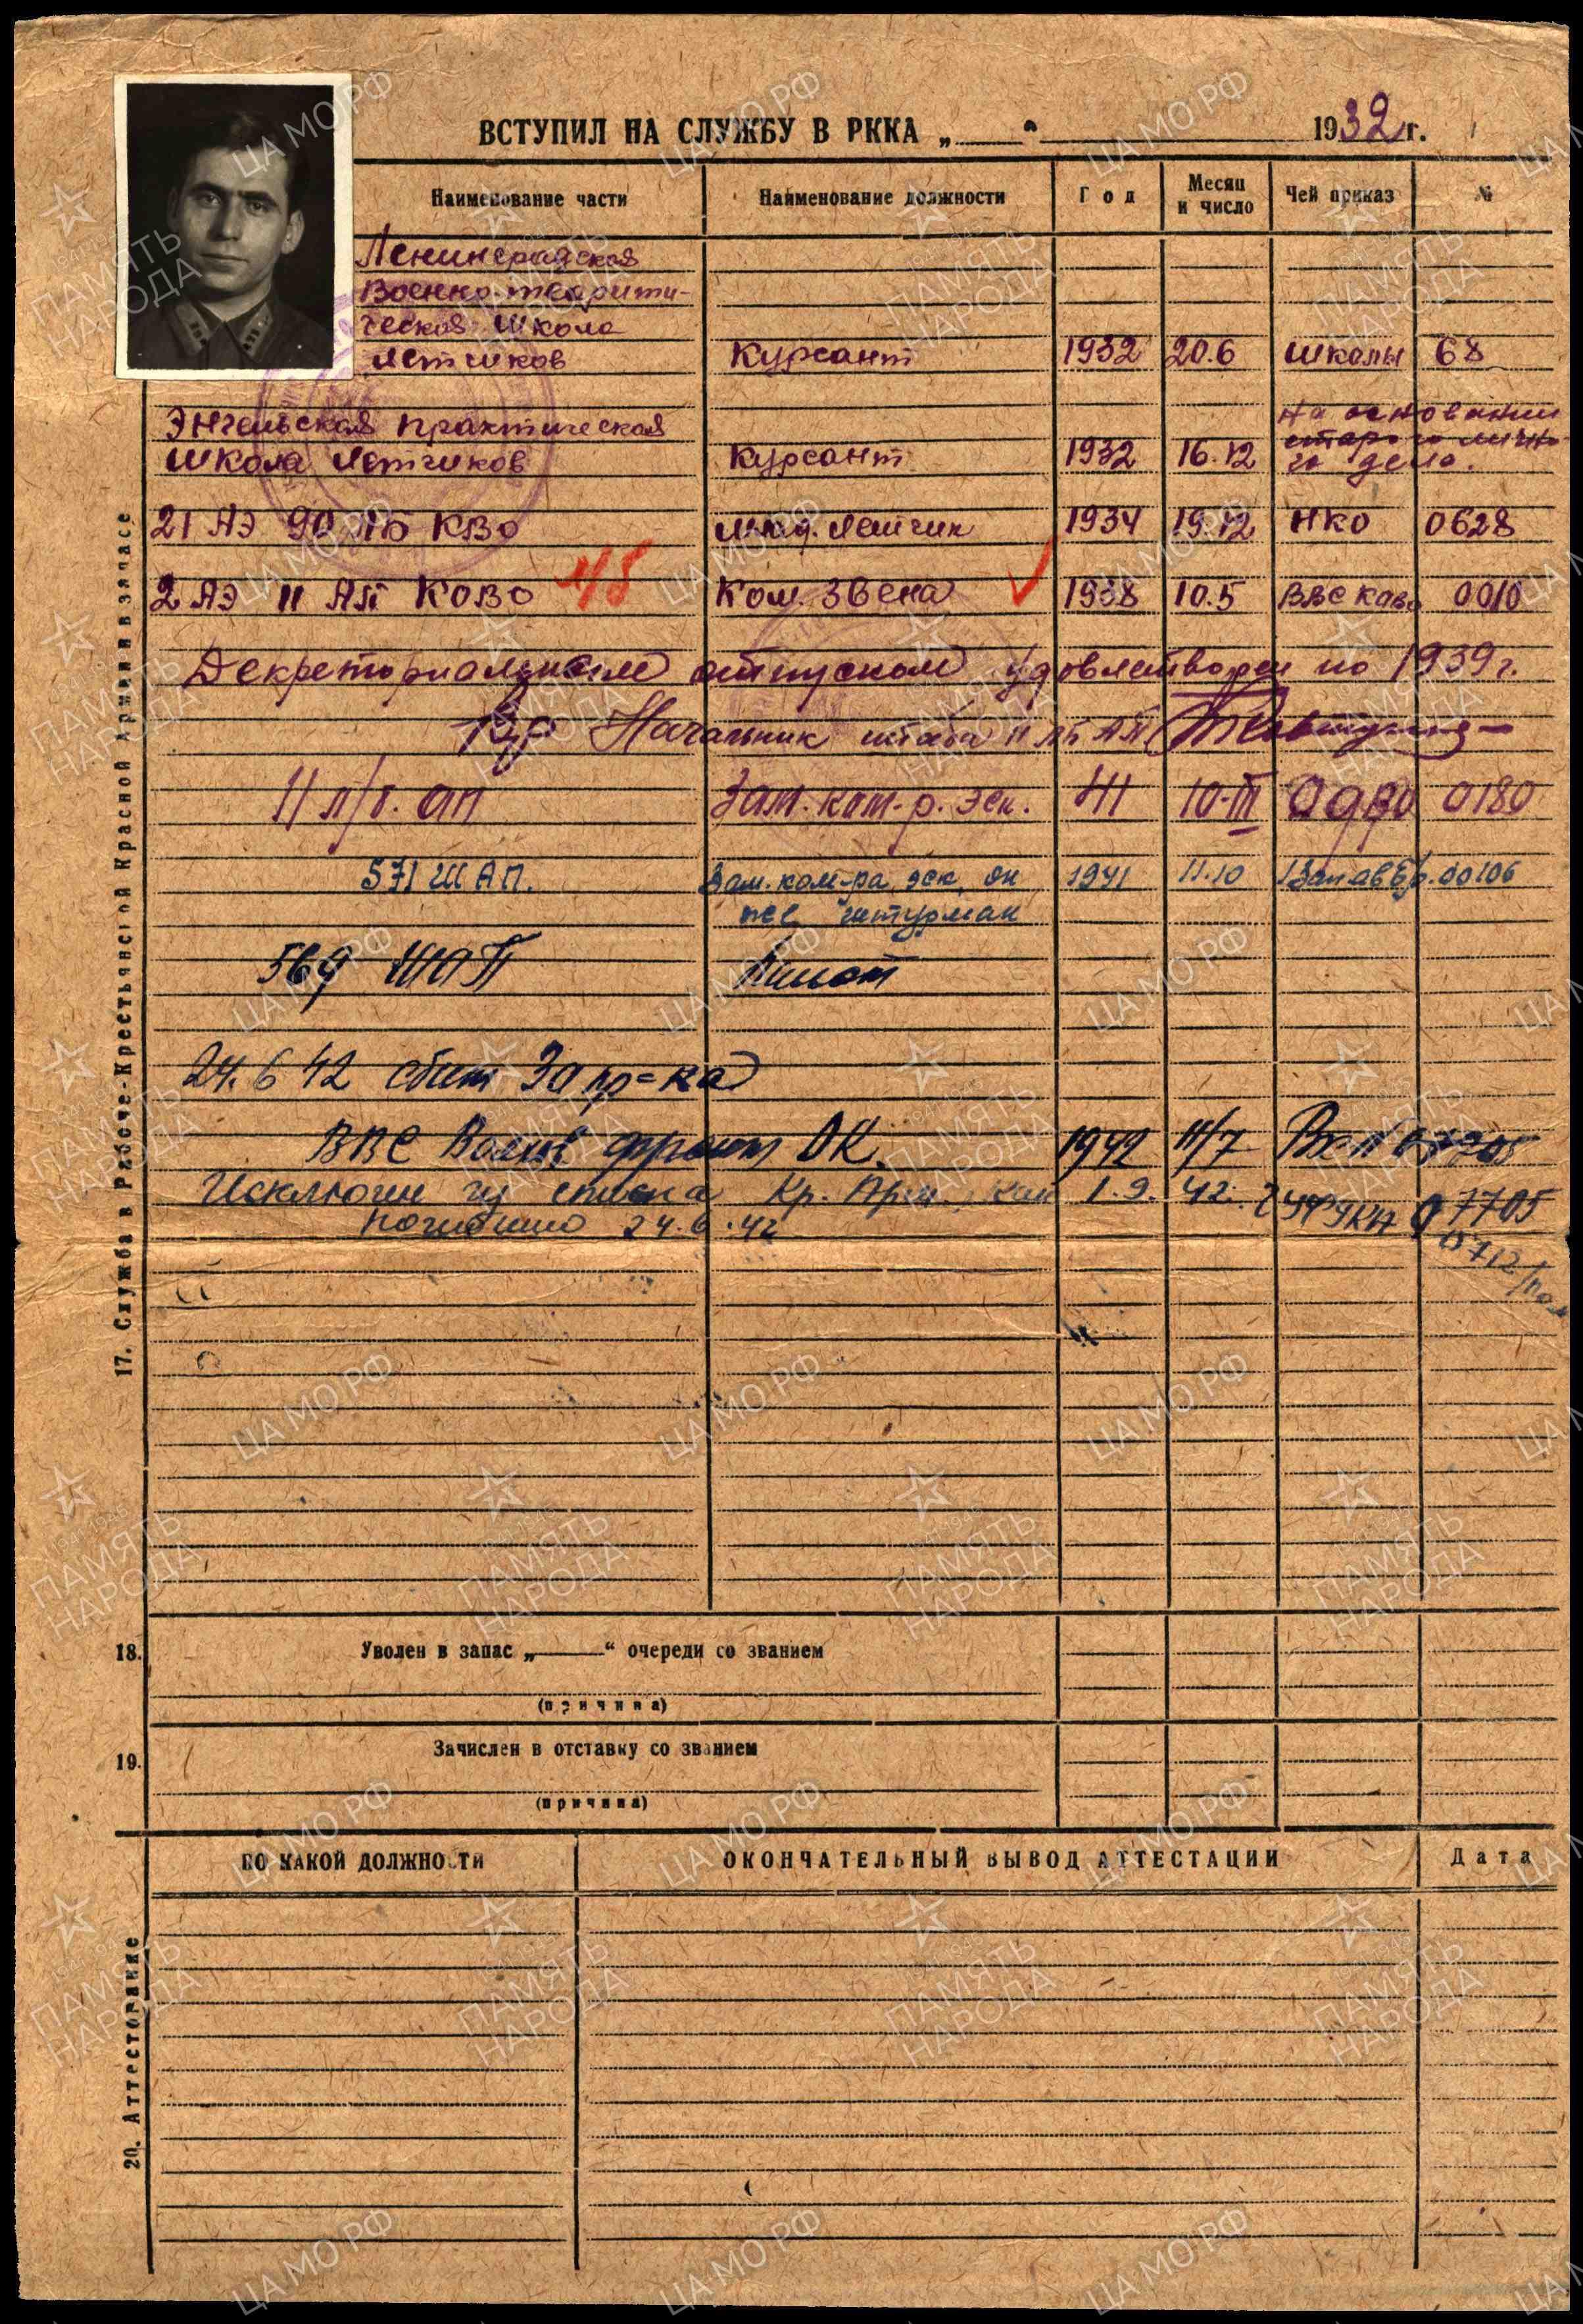 ВСТУПИЛ НА СЛУЖБУ В РККА „____“ ____ 1932 г.
Наименование части Наименование должности Год Месяц и число Чей приказ №
Ленинградская
Военно-теорити-
ческая школа
летчиков Курсант 1932 20.6 школы 68
На основании
Энгельская практическая старого лично-
школа летчиков Курсант 1932 16.12 го дела.
21 АЭ 90 ЛБ КВО млад. летчик 1934 19.12 НКО 0628
2 АЭ 11 АП КОВО Ком. звена 1938 10.5 ВВС Ково 0010
Декреториальным отпуском удовлетворен по 1939 г.
Вр Начальник штаба 11 лб АП
11 л/б. ап Зам. ком-р. эск. 41 10-III ОдВО 0180
571 ШАП. Зам. ком-ра эск. он 1941 11.10 00106
же штурман
569 ШАП Пилот
24.6 42 сбит За пр-ка
ВВС Волхв фронт ОК. 1942 11/7
Исключен из списка Кр. Арм. как 1.9. 42. ГУФУКА 07705
погибшего 24.6.42
17. Служба в Рабоче-Крестьянской Красной Армии и в запасе
18. Уволен в запас „____“ очереди со званием
(причина)
19. Зачислен в отставку со званием
(причина)
ПО КАКОЙ ДОЛЖНОСТИ ОКОНЧАТЕЛЬНЫЙ ВЫВОД АТТЕСТАЦИИ Дата
20. Аттестование
ЦА МО РФ
1941-1945
ПАМЯТЬ
НАРОДА